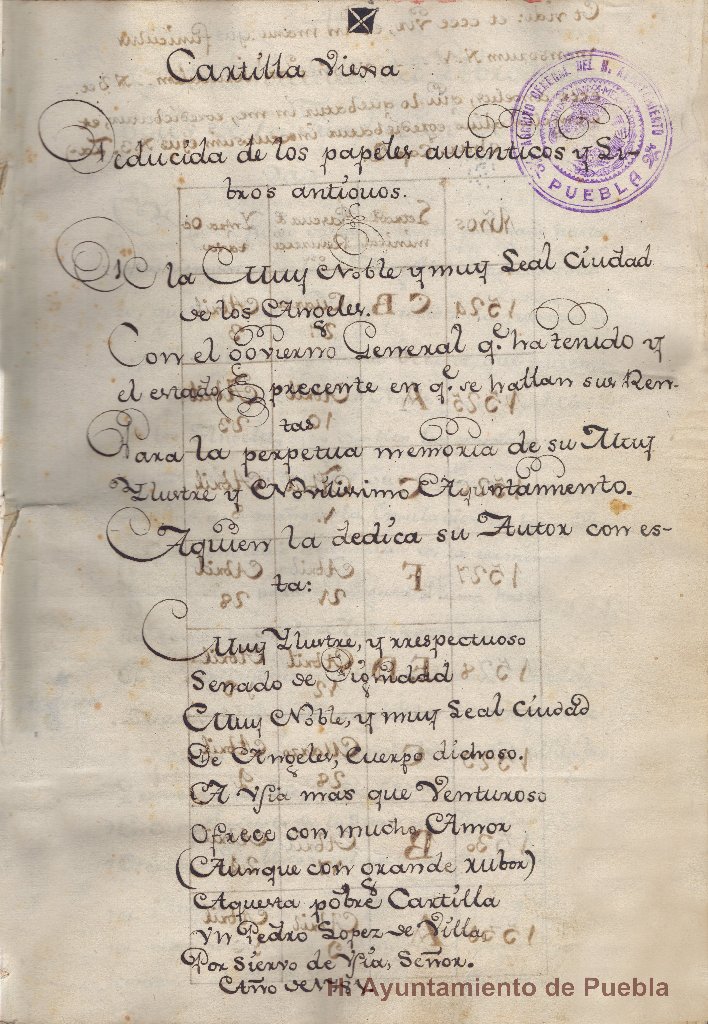 Cartilla Viexa
Reducida de los papeles autenticos y Li-
bros antiguos.
De la Muy Noble y muy Leal Ciudad
de los Angeles.
Con el govierno General q.e ha tenido y
el estado precente en q.e se hallan sus Ren-
tas
Para la perpetua memoria de su Muy
Yllustre y Novilissimo Ayuntamiento.
Aquien la dedica su Autor con es-
ta:
Muy Yllustre, y rrespectuoso
Senado de Dignidad
Muy Noble, y muy Leal Ciudad
De Angeles, Cuerpo dichoso.
A Vsia mas que Venturoso
Ofrece con mucho Amor
(Aunque con grande rubor)
Aquesta pobre Cartilla
Vn Pedro Lopez de Villa
Por Siervo de Vsia, Señor.
Año de
ARCHIVO GENERAL DEL H. AYUNTAMIENTO
PUEBLA
H. Ayuntamiento de Puebla